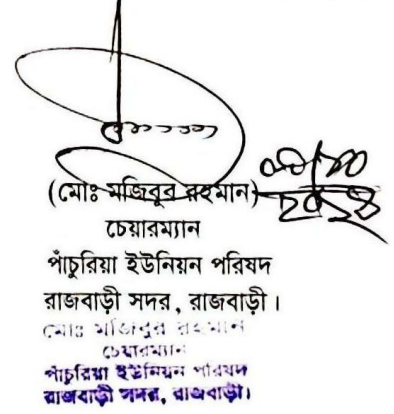 (মোঃ মজিবুর রহমান)
চেয়ারম্যান
পাঁচুরিয়া ইউনিয়ন পরিষদ
রাজবাড়ী সদর, রাজবাড়ী।
মোঃ মজিবুর রহমান
চেয়ারম্যান
পাঁচুরিয়া ইউনিয়ন পরিষদ
রাজবাড়ী সদর, রাজবাড়ী।